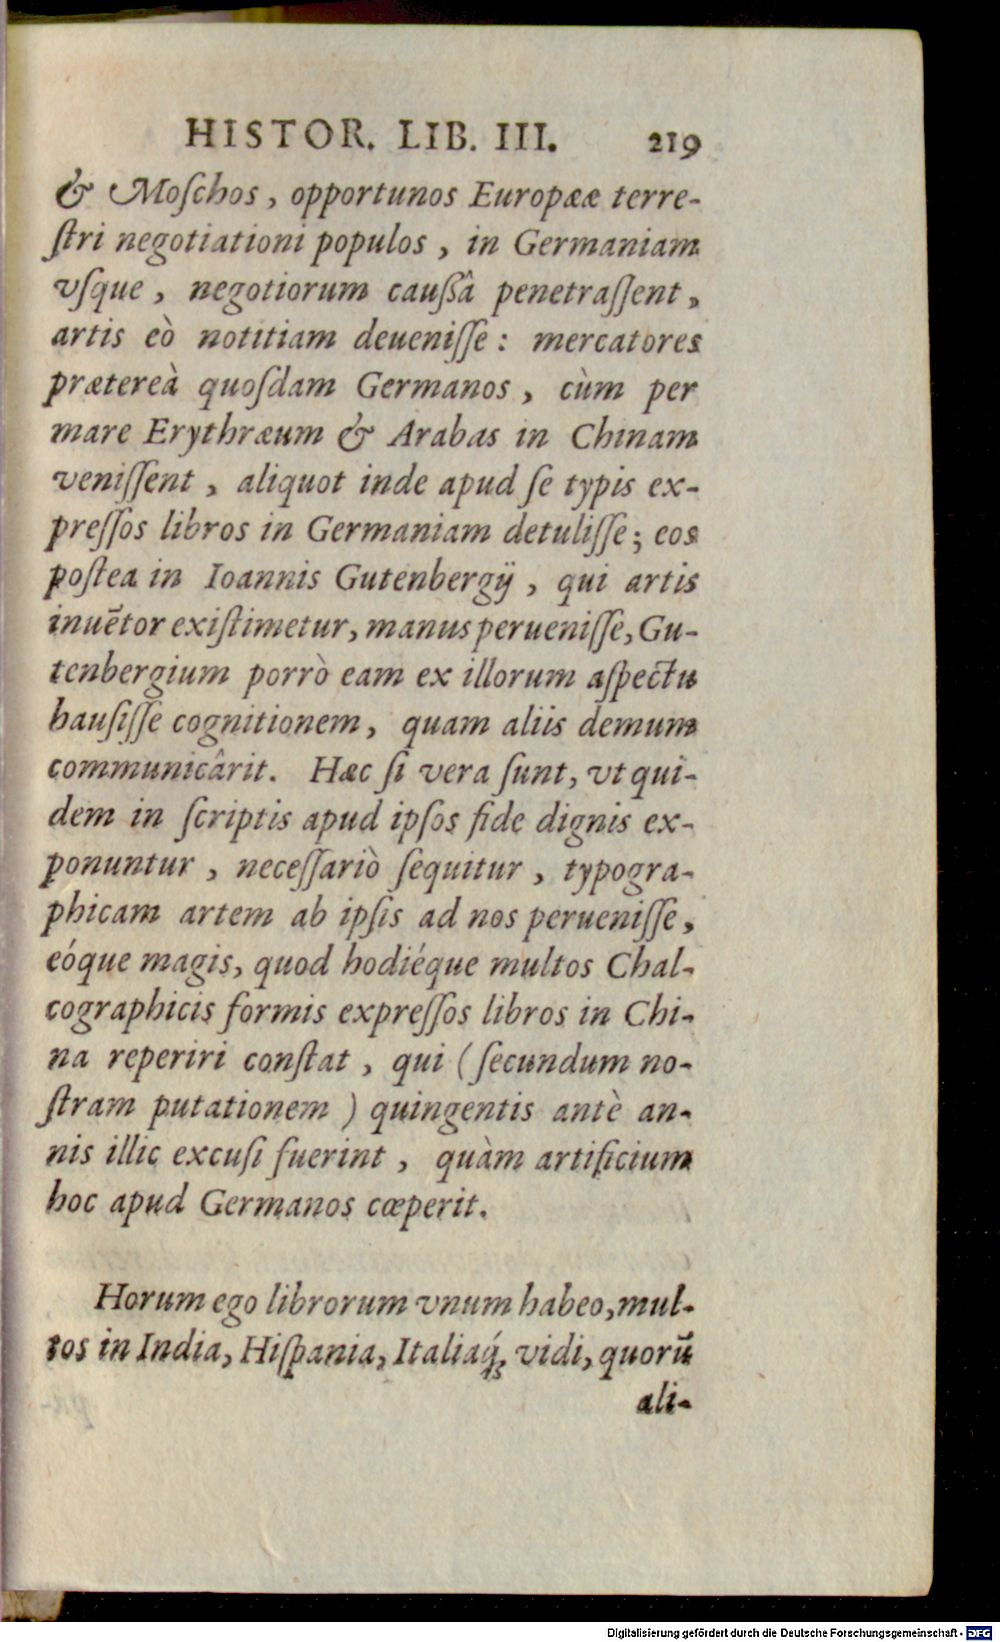 HISTOR. LIB. III. 219
& Moſchos, opportunos Europææ terre-
ſtri negotiationi populos, in Germaniam
vſque, negotiorum cauſsâ penetraſſent,
artis eò notitiam deueniſſe: mercatores
prætereà quoſdam Germanos, cùm per
mare Erythræum & Arabas in Chinam
veniſſent, aliquot inde apud ſe typis ex-
preſſos libros in Germaniam detuliſſe; eos
poſtea in Ioannis Gutenbergij, qui artis
inuētor exiſtimetur, manus perueniſſe, Gu-
tenbergium porrò eam ex illorum aſpectu
hauſiſſe cognitionem, quam aliis demum
communicârit. Hæc ſi vera ſunt, vt qui-
dem in ſcriptis apud ipſos fide dignis ex-
ponuntur, neceſſariò ſequitur, typogra-
phicam artem ab ipſis ad nos perueniſſe,
eóque magis, quod hodiéque multos Chal-
cographicis formis expreſſos libros in Chi-
na reperiri conſtat, qui (ſecundum no-
ſtram putationem) quingentis antè an-
nis illic excuſi fuerint, quàm artificium
hoc apud Germanos cœperit.
Horum ego librorum vnum habeo, mul-
tos in India, Hiſpania, Italiaq́; vidi, quorū
ali-
Digitalisierung gefördert durch die Deutsche Forschungsgemeinschaft - DFG